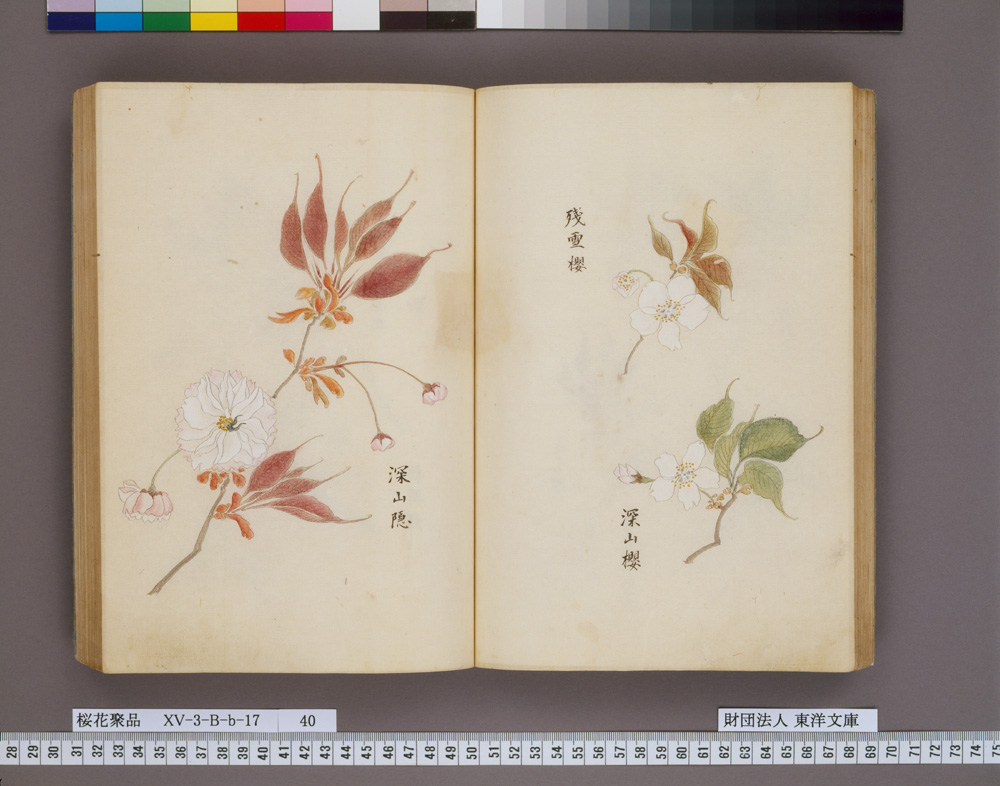 残雪櫻
深山櫻
深山隠
桜花聚品 XV-3-B-b-17 40
財団法人 東洋文庫
28 29 30 31 32 33 34 35 36 37 38 39 40 41 42 43 44 45 46 47 48 49 50 51 52 53 54 55 56 57 58 59 60 61 62 63 64 65 66 67 68 69 70 71 72 73 74 75